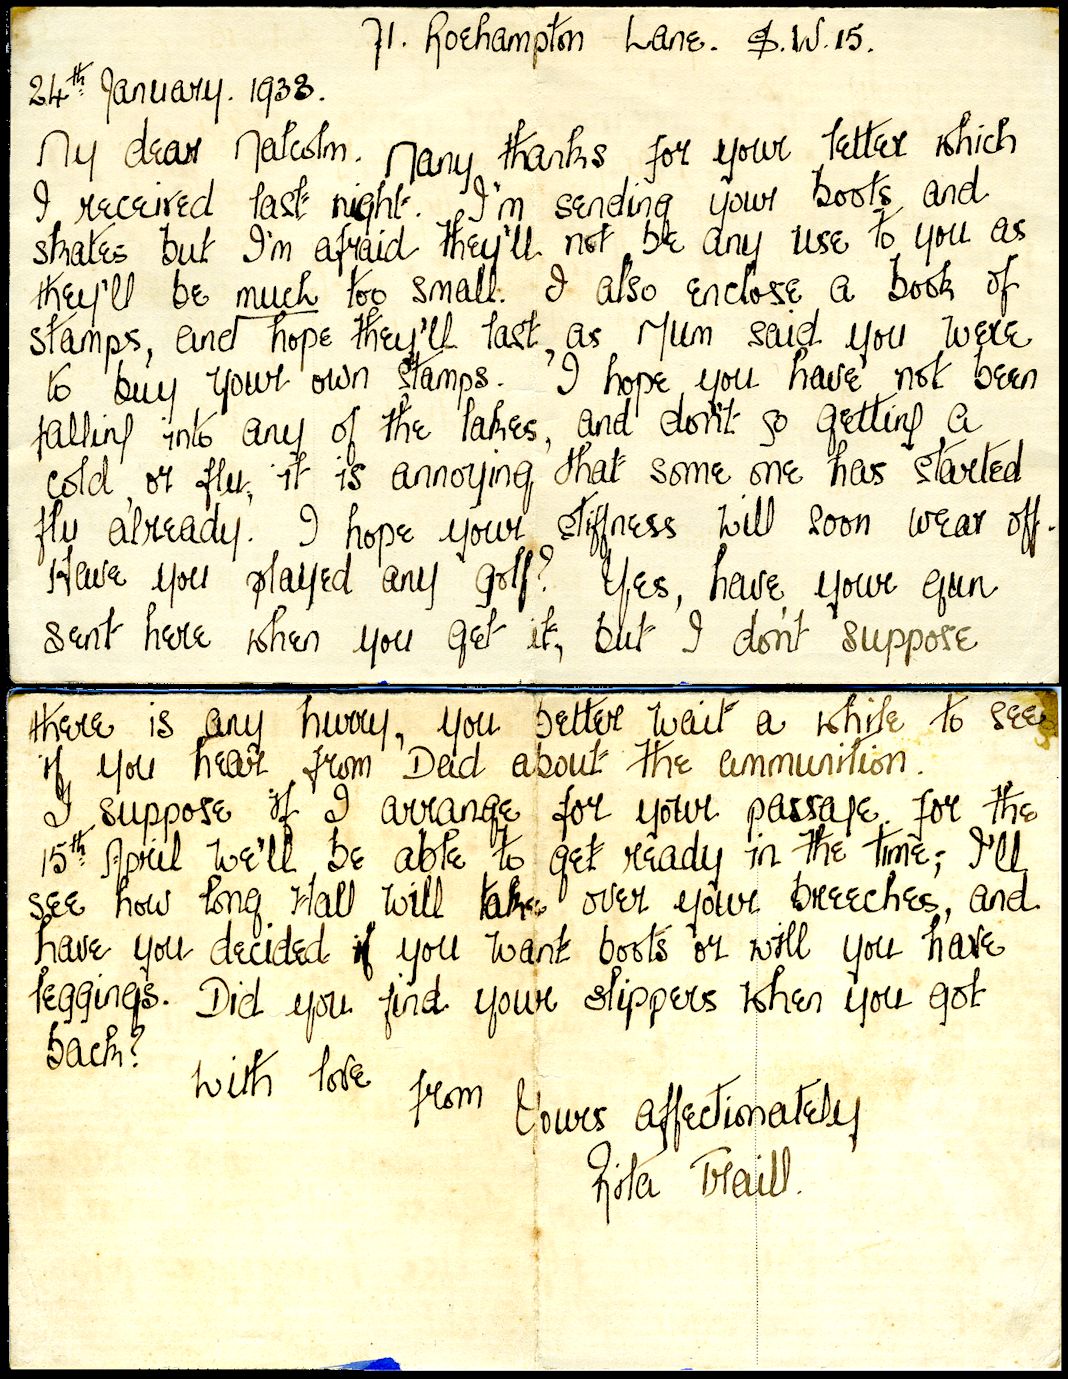 71. Roehampton Lane. S.W.15.
24th January. 1938.
My dear Malcolm. Many thanks for your letter which
I received last night. I'm sending your boots and
skates but I'm afraid they'll not be any use to you as
they'll be much too small. I also enclose a book of
stamps, and hope they'll last, as Mum said you were
to buy your own stamps. I hope you have not been
falling into any of the lakes, and don't go getting a
cold, or flu, it is annoying that some one has started
flu already. I hope your stiffness will soon wear off.
Have you played any golf? Yes, have your gun
sent here when you get it, but I don't suppose
there is any hurry, you better wait a while to see
if you hear from Dad about the ammunition.
I suppose if I arrange for your passage for the
15th April we'll be able to get ready in the time; I'll
see how long Hall will take over your breeches, and
have you decided if you want boots or will you have
leggings. Did you find your slippers when you got
back?
With love from Yours affectionately
Rita Traill.